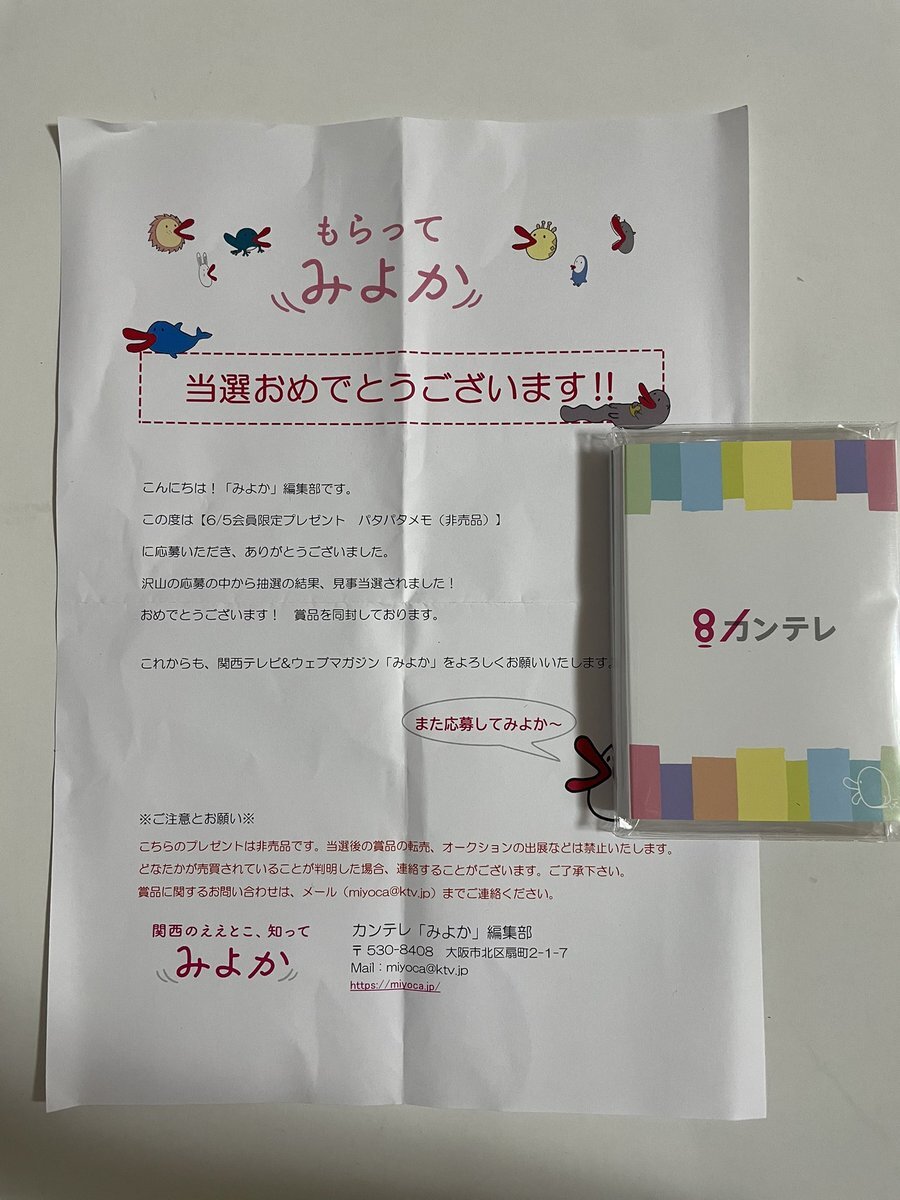 もらって
みよか
当選おめでとうございます!!
こんにちは！「みよか」編集部です。
この度は【6/5会員限定プレゼント　パタパタメモ（非売品）】
に応募いただき、ありがとうございました。
沢山の応募の中から抽選の結果、見事当選されました！
おめでとうございます！　賞品を同封しております。
これからも、関西テレビ&ウェブマガジン「みよか」をよろしくお願いいたします。
また応募してみよか〜
8カンテレ
※ご注意とお願い※
こちらのプレゼントは非売品です。当選後の賞品の転売、オークションの出展などは禁止いたします。
どなたかが売買されていることが判明した場合、連絡することがございます。ご了承下さい。
賞品に関するお問い合わせは、メール（miyoca@ktv.jp）までご連絡ください。
関西のええとこ、知って
みよか
カンテレ「みよか」編集部
〒530-8408　大阪市北区扇町2-1-7
Mail：miyoca@ktv.jp
https://miyoca.jp/